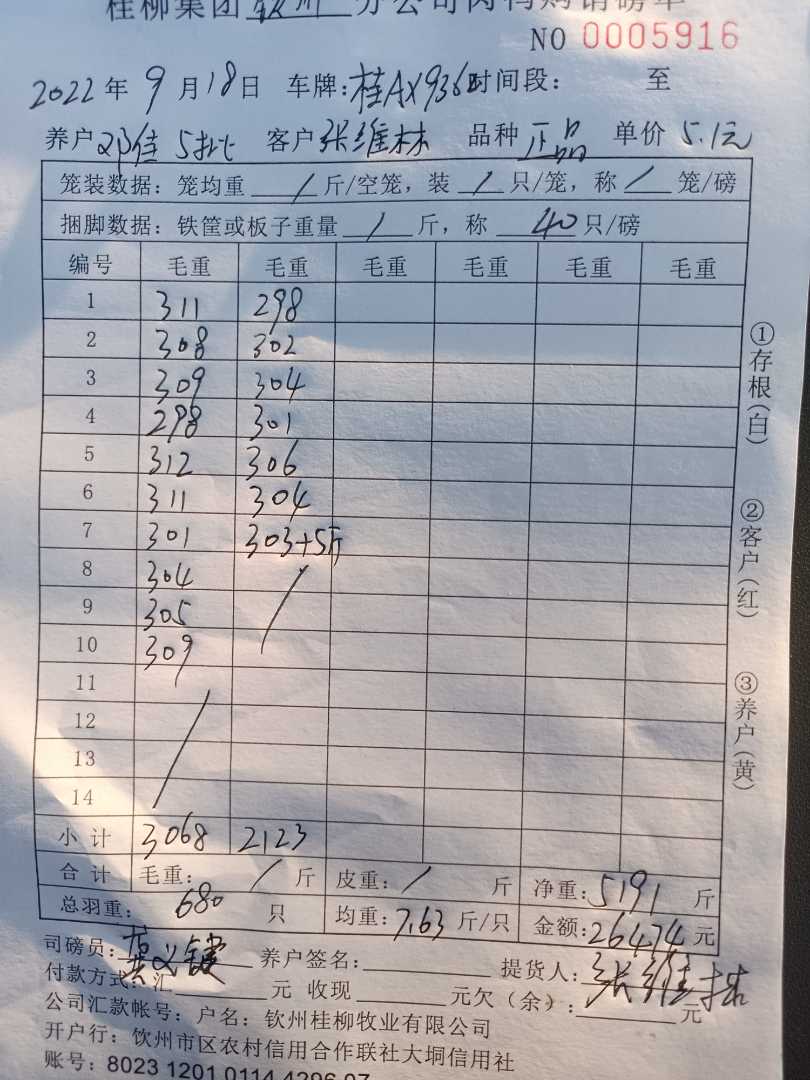 桂柳集团 钦州 分公司肉鸭购销磅单
NO 0005916
2022年 9月18日 车牌:桂AX936 时间段: 至
养户 邓佳 5批 客户 张维林 品种 正品 单价 5.1元
笼装数据: 笼均重 / 斤/空笼, 装 / 只/笼, 称 / 笼/磅
捆脚数据: 铁筐或板子重量 / 斤, 称 40 只/磅
编号 毛重 毛重 毛重 毛重 毛重 毛重
1 311 298
2 308 302
3 309 304
4 298 301
5 312 306
6 311 304
7 301 303+5斤
8 304 /
9 305
10 309
11
12 /
13
14
小计 3068 2123
合计 毛重: / 斤 皮重: / 斤 净重: 5191 斤
总羽重: 680 只 均重: 7.63 斤/只 金额: 26474 元
司磅员: 养户签名: 提货人: 张维林
付款方式: 汇 元 收现 元欠(余): 元
公司汇款帐号: 户名: 钦州桂柳牧业有限公司
开户行: 钦州市区农村信用合作联社大垌信用社
账号: 8023 1201 0114 4296 07
①存根(白)
②客户(红)
③养户(黄)